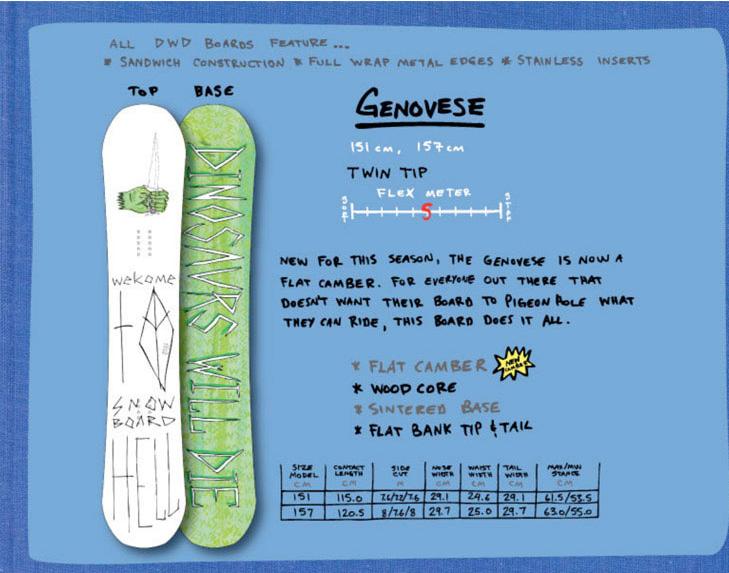 ALL DWD BOARDS FEATURE...
* SANDWICH CONSTRUCTION * FULL WRAP METAL EDGES * STAINLESS INSERTS
TOP BASE
GENOVESE
151 cm, 157cm
TWIN TIP
FLEX METER
SOFT 5 STIFF
NEW FOR THIS SEASON, THE GENOVESE IS NOW A
FLAT CAMBER. FOR EVERYONE OUT THERE THAT
DOESN'T WANT THEIR BOARD TO PIGEON HOLE WHAT
THEY CAN RIDE, THIS BOARD DOES IT ALL.
* FLAT CAMBER NEW CAMBER
* WOOD CORE
* SINTERED BASE
* FLAT BANK TIP & TAIL
SIZE MODEL CONTACT LENGTH SIDE CUT NOSE WIDTH WAIST WIDTH TAIL WIDTH MAX/MIN STANCE
CM CM M CM CM CM CM
151 115.0 7.6/7.2/7.6 29.1 24.6 29.1 61.5/53.5
157 120.5 8/7.6/8 29.7 25.0 29.7 63.0/55.0
welcome
TO
SNOW
BOARD
HELL
DINOSAURS WILL DIE